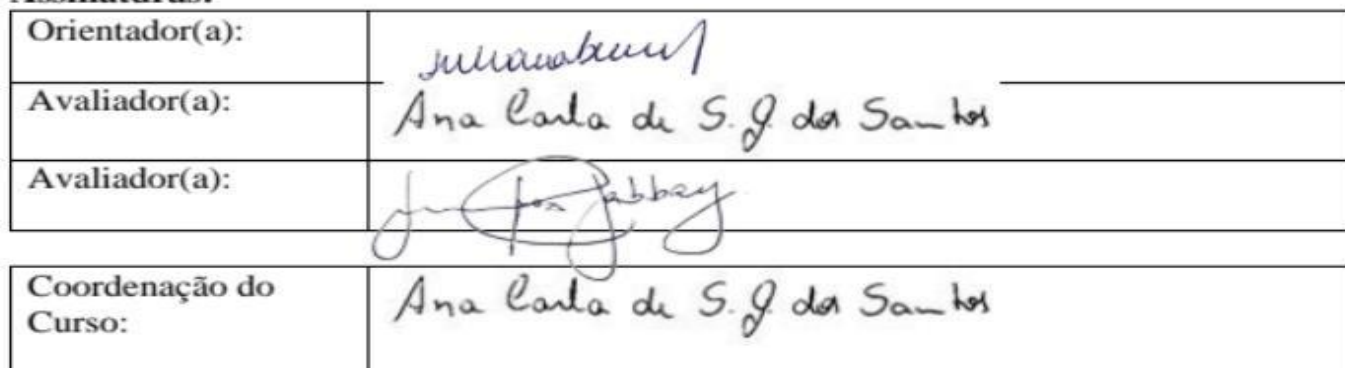 Orientador(a):
Avaliador(a): Ana Carla de S. J. dos Santos
Avaliador(a):
Coordenação do
Curso: Ana Carla de S. J. dos Santos